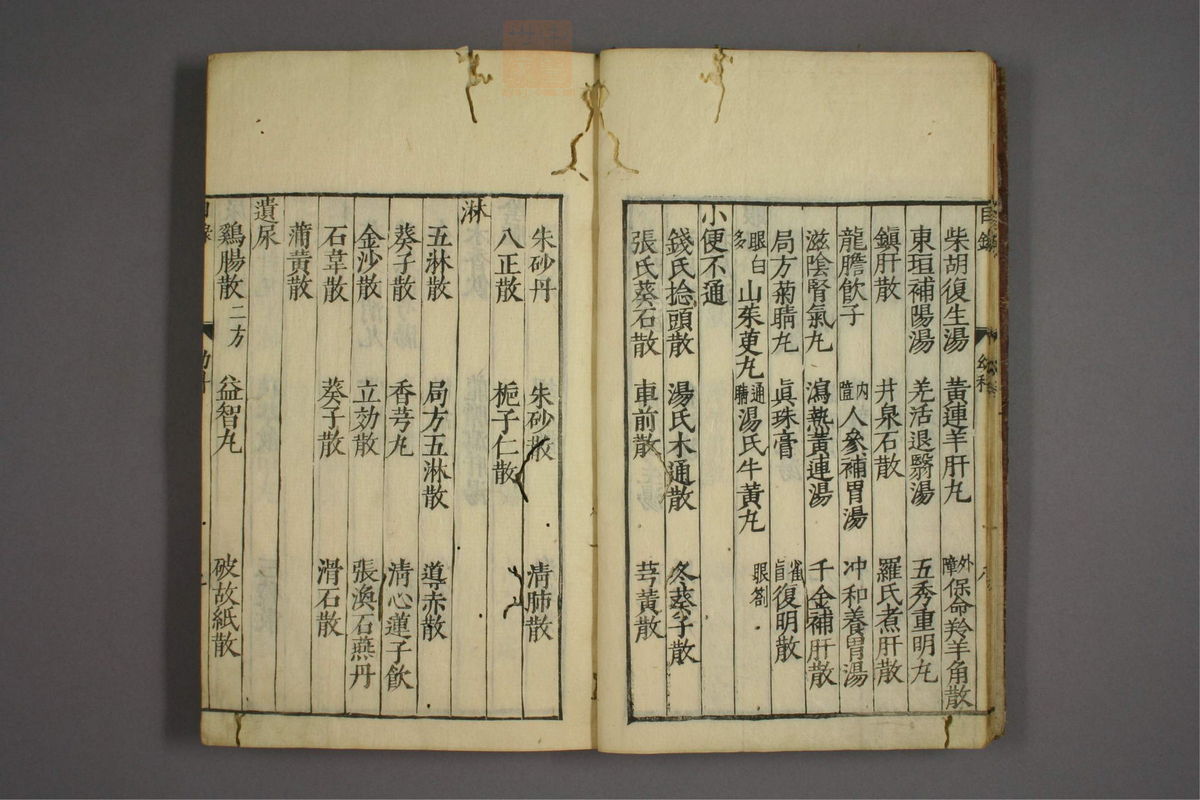 目錄 幼科
柴胡復生湯 黃連羊肝丸 外障 保命羚羊角散
東垣補陽湯 羌活退翳湯 五秀重明丸
鎭肝散 井泉石散 羅氏煮肝散
龍膽飮子 內障 人參補胃湯 冲和養胃湯
滋陰腎氣丸 瀉熱黃連湯 千金補肝散
局方菊睛丸 眞珠膏 雀盲 復明散
眼白多 山茱萸丸 通睛 湯氏牛黃丸 眼劄
小便不通
錢氏捻頭散 湯氏木通散 冬葵子散
張氏葵石散 車前散 芎黃散
朱砂丹 朱砂散 淸肺散
八正散 梔子仁散
淋
五淋散 局方五淋散 導赤散
葵子散 香芎丸 淸心蓮子飮
金沙散 立効散 張渙石燕丹
石韋散 葵子散 滑石散
蒲黃散
遺尿
鷄腸散二方 益智丸 破故紙散